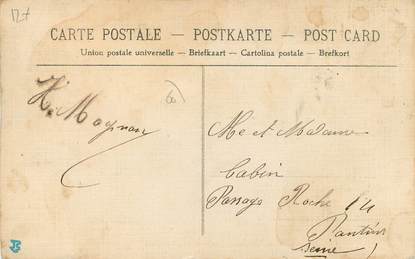 CARTE POSTALE — POSTKARTE — POST CARD
Union postale universelle — Briefkaart — Cartolina postale — Brefkort
H. Magnan
Me et Madame
Cabin
Passage Roche 14
Pantin
Seine